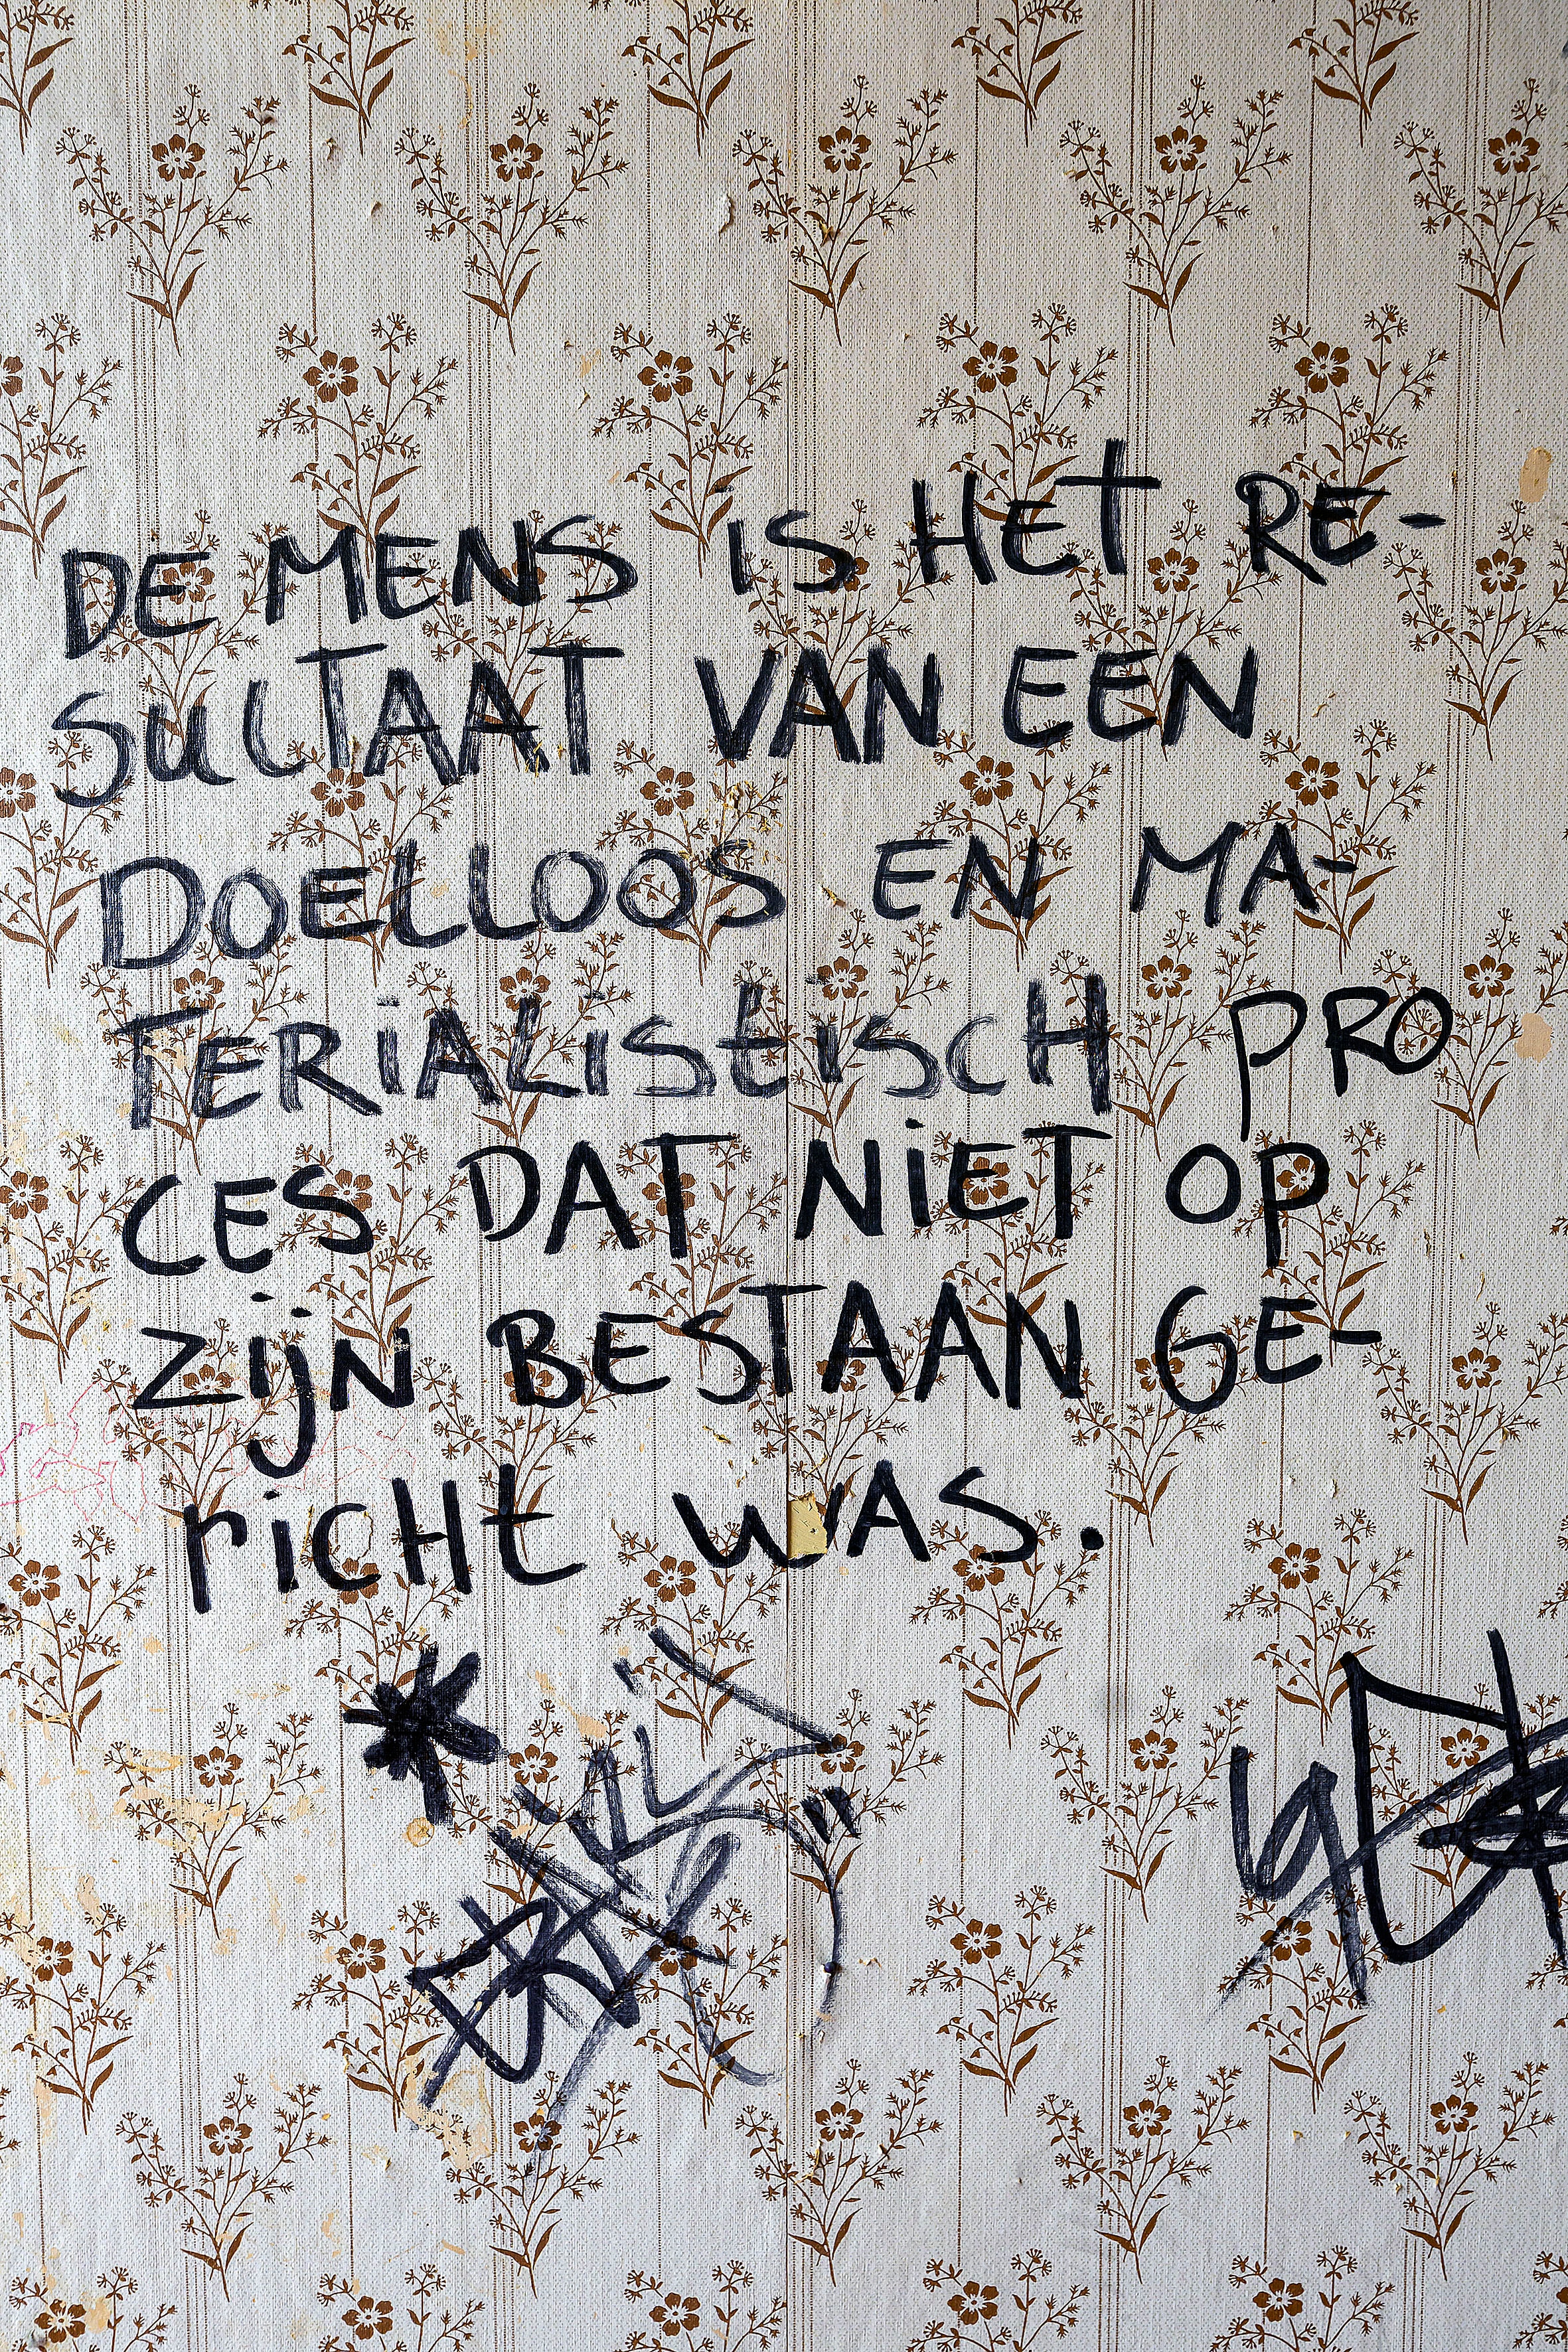 DE MENS is HEt RE-
SULTAAT VAN EEN
DOELLOOS EN MA-
TERiAListiscH PRO
CES DAT NiET OP
zijn BESTAAN GE-
ricHt WAS.